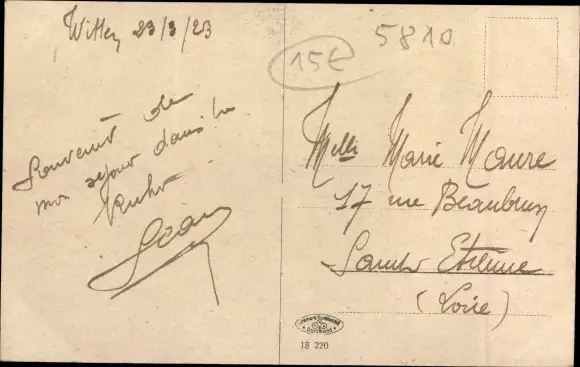 Witten 23/3/23
Souvenir de
mon séjour dans la
Ruhr
Jean
15€
5810
Melle Marie Maure
17 rue Beaubrun
Saint Etienne
(Loire)
18 220